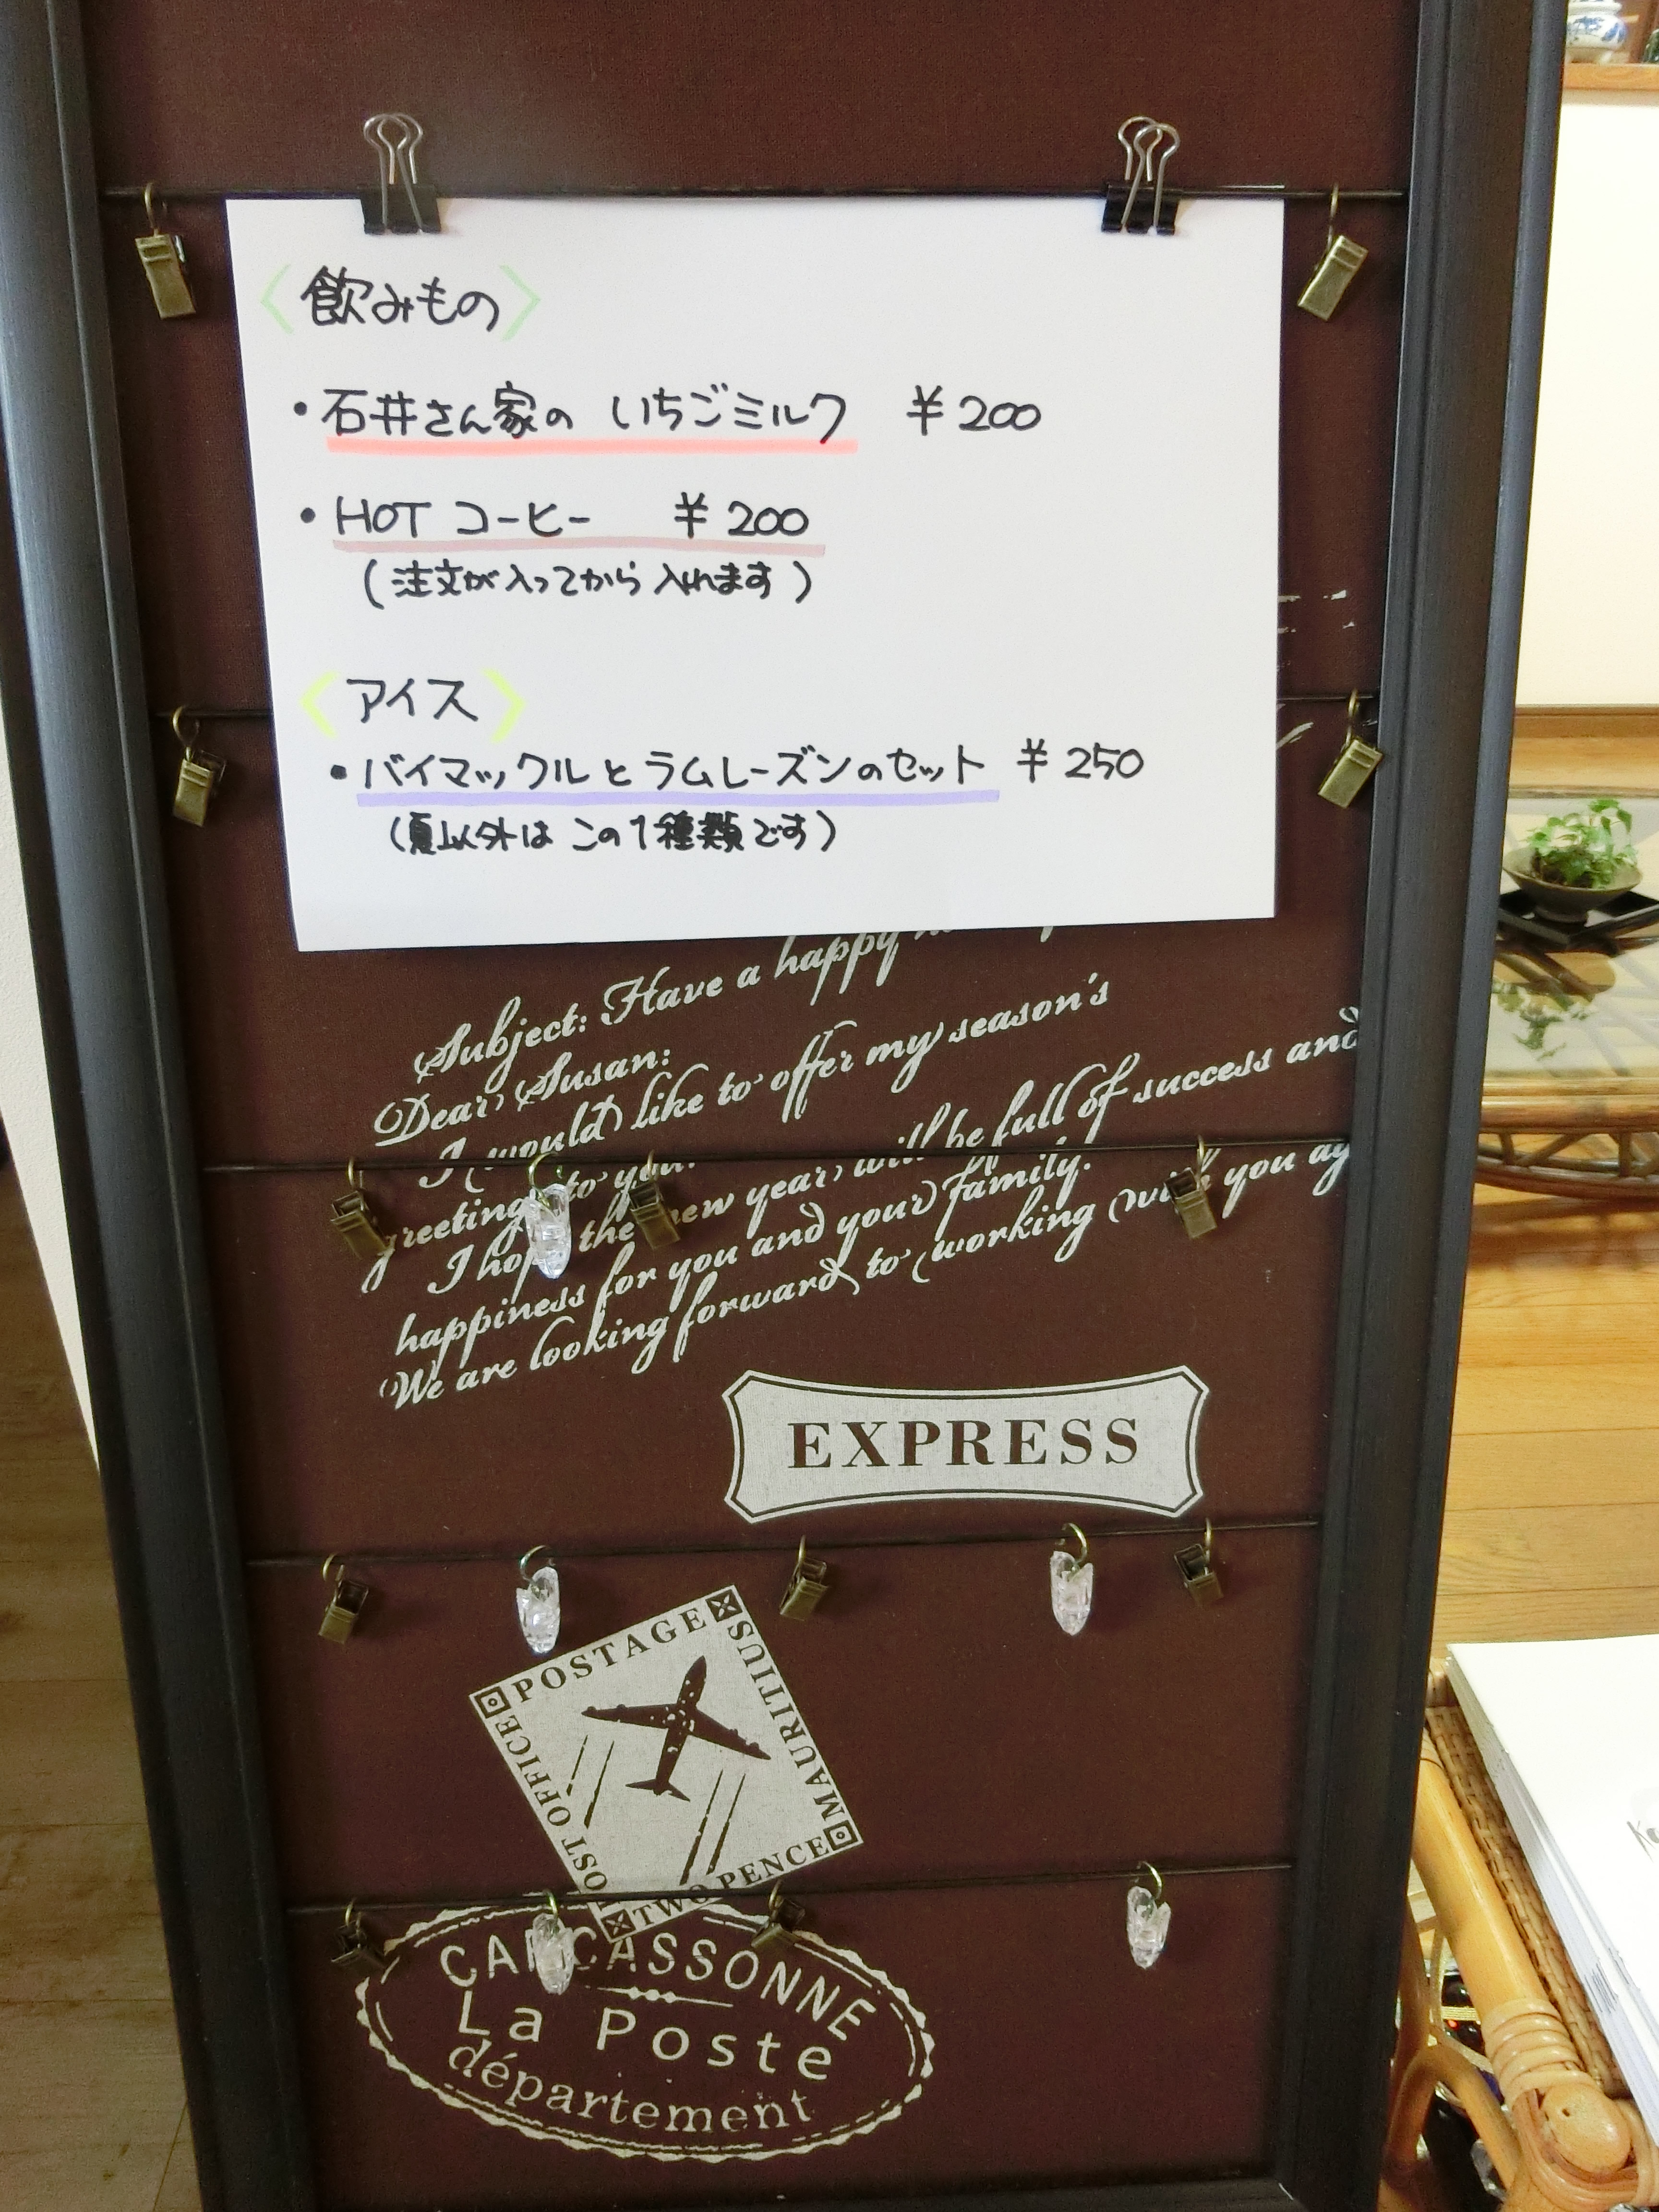 〈飲みもの〉
・石井さん家の いちごミルク ¥200
・HOT コーヒー ¥200
(注文が入ってから入れます)
〈アイス〉
・バイマックルとラムレーズンのセット ¥250
(夏以外は この1種類です)
Subject: Have a happy
Dear Susan:
I would like to offer my season's
greeting to you.
I hope the new year will be full of success and
happiness for you and your family.
We are looking forward to working with you
EXPRESS
POSTAGE
MAURITIUS
POST OFFICE
TWO PENCE
CARCASSONNE
La Poste
département